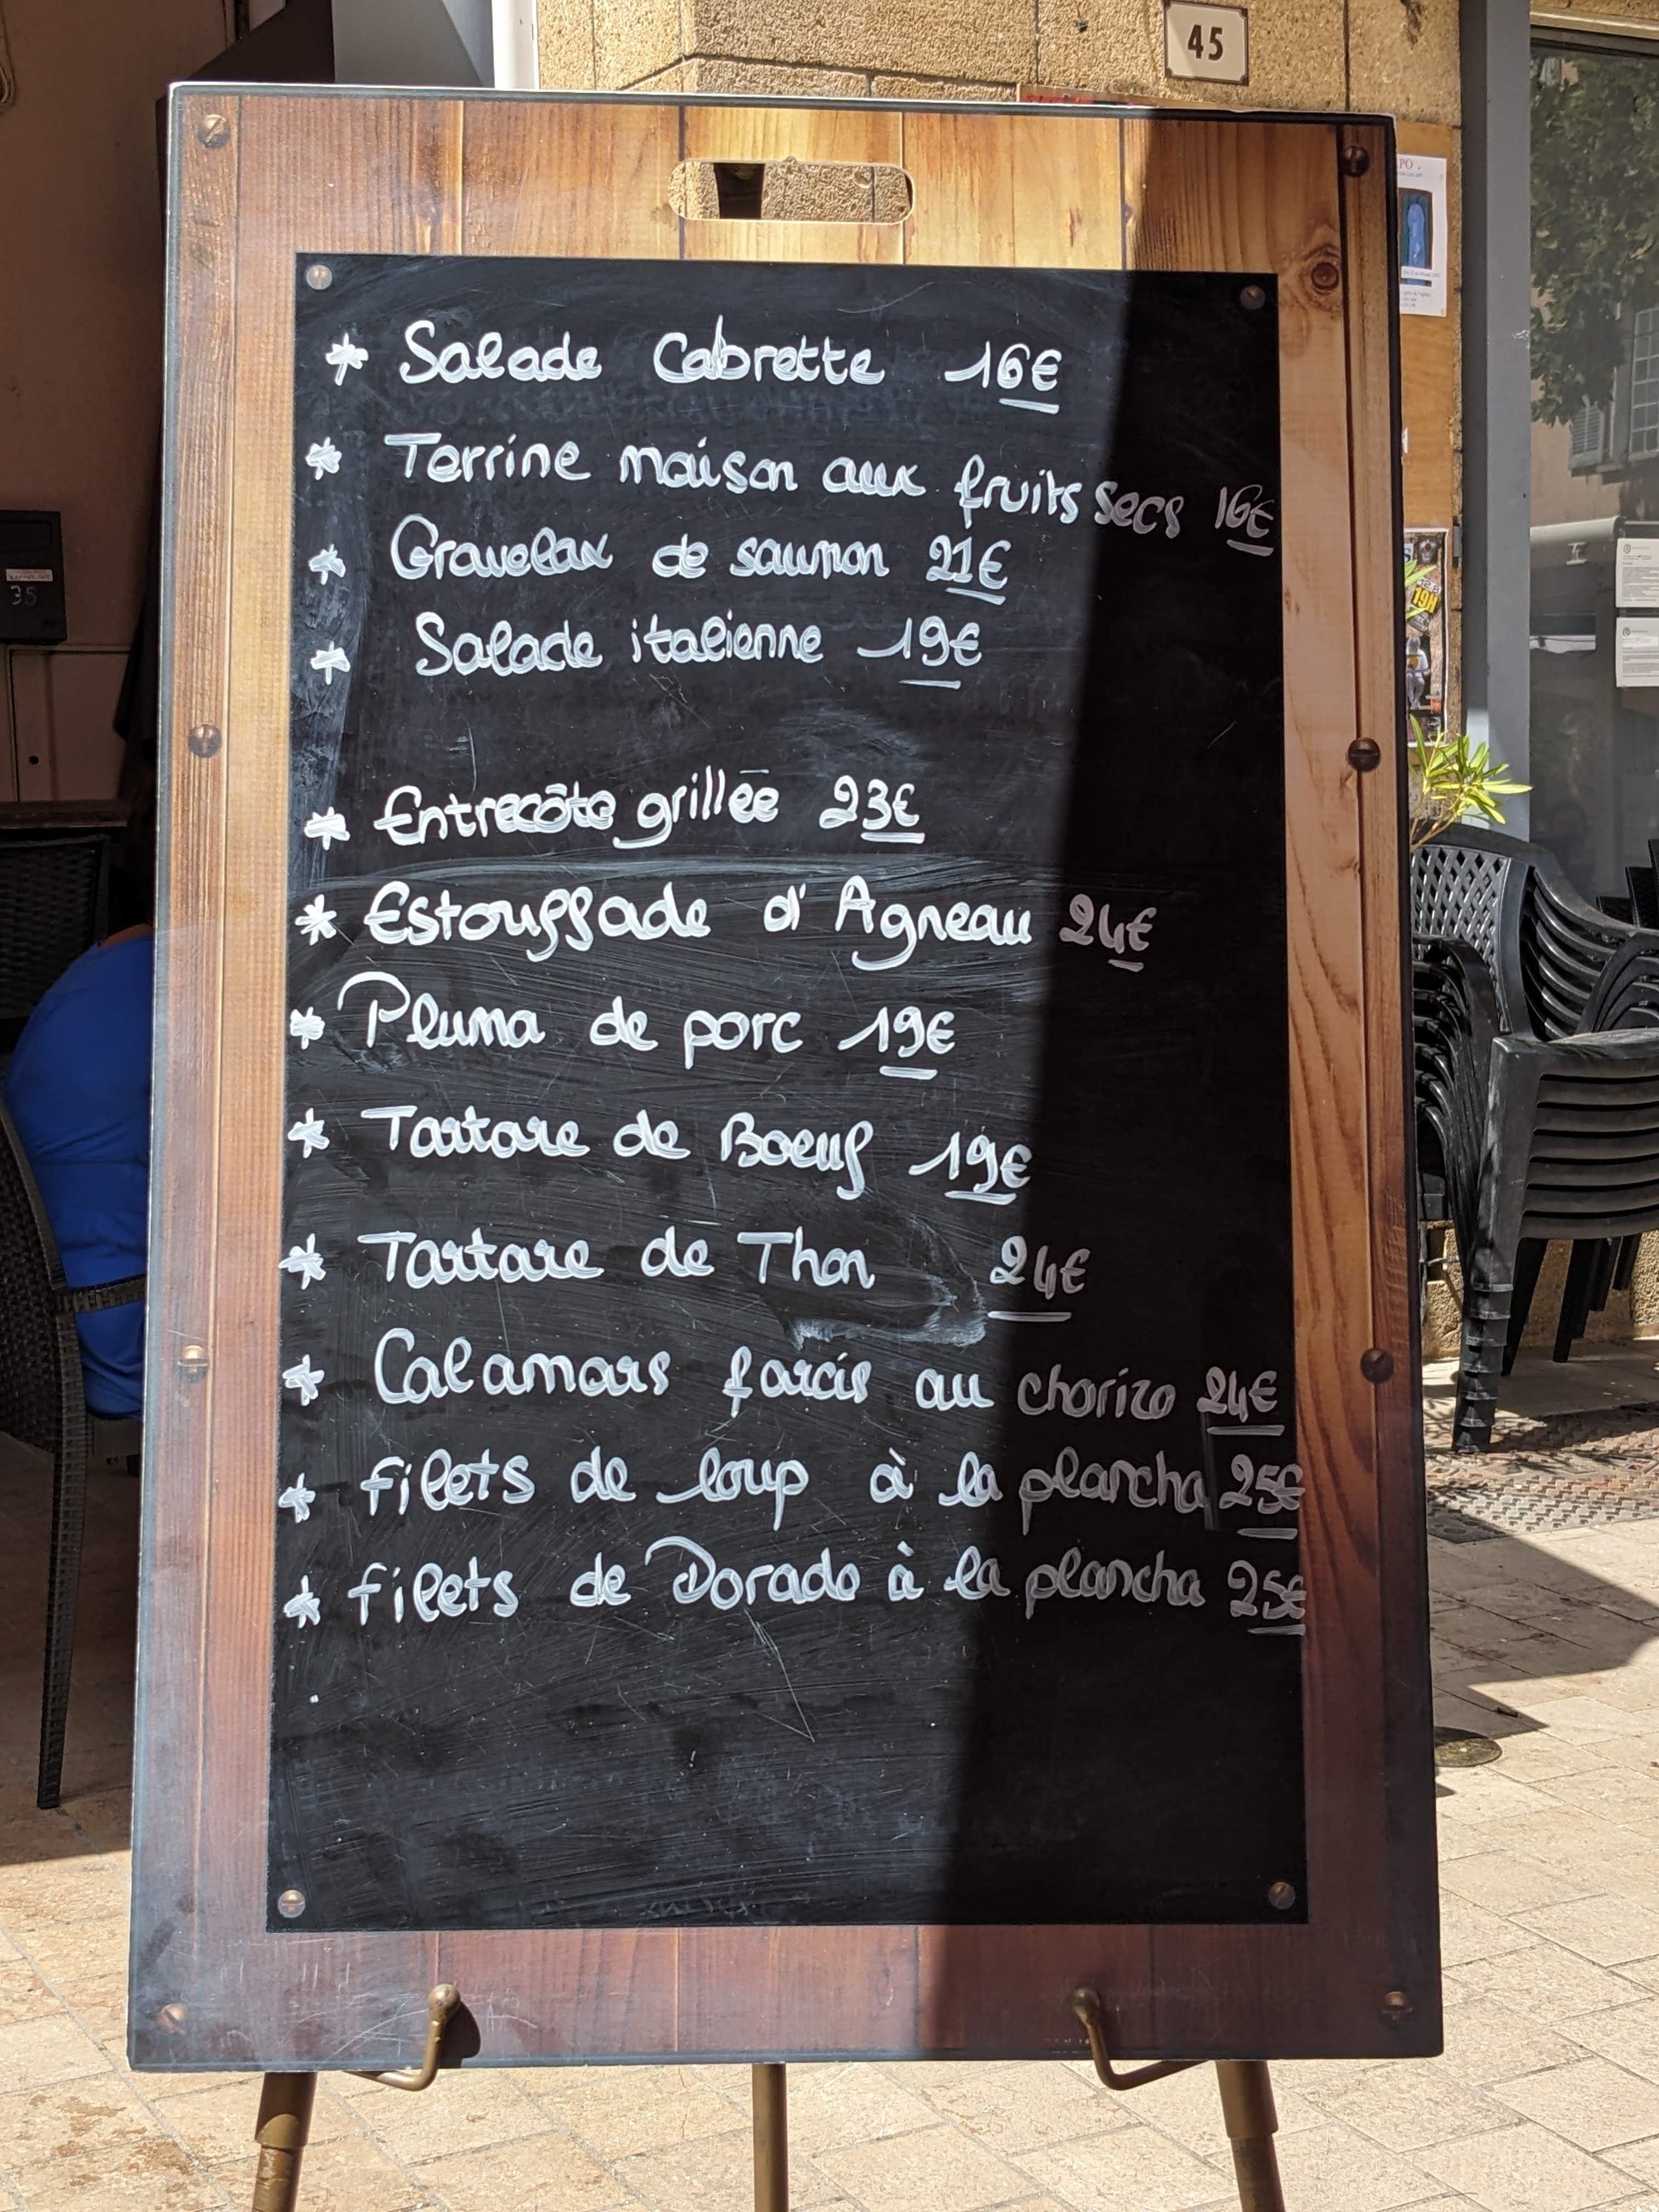 45
* Salade Cabrette 16€
* Terrine maison aux fruits secs 16€
* Gravelax de saumon 21€
* Salade italienne 19€
* Entrecôte grillée 23€
* Estouffade d'Agneau 24€
* Pluma de porc 19€
* Tartare de Boeuf 19€
* Tartare de Thon 24€
* Calamars farcis au chorizo 24€
* filets de loup à la plancha 25€
* filets de Dorade à la plancha 25€
35
19H